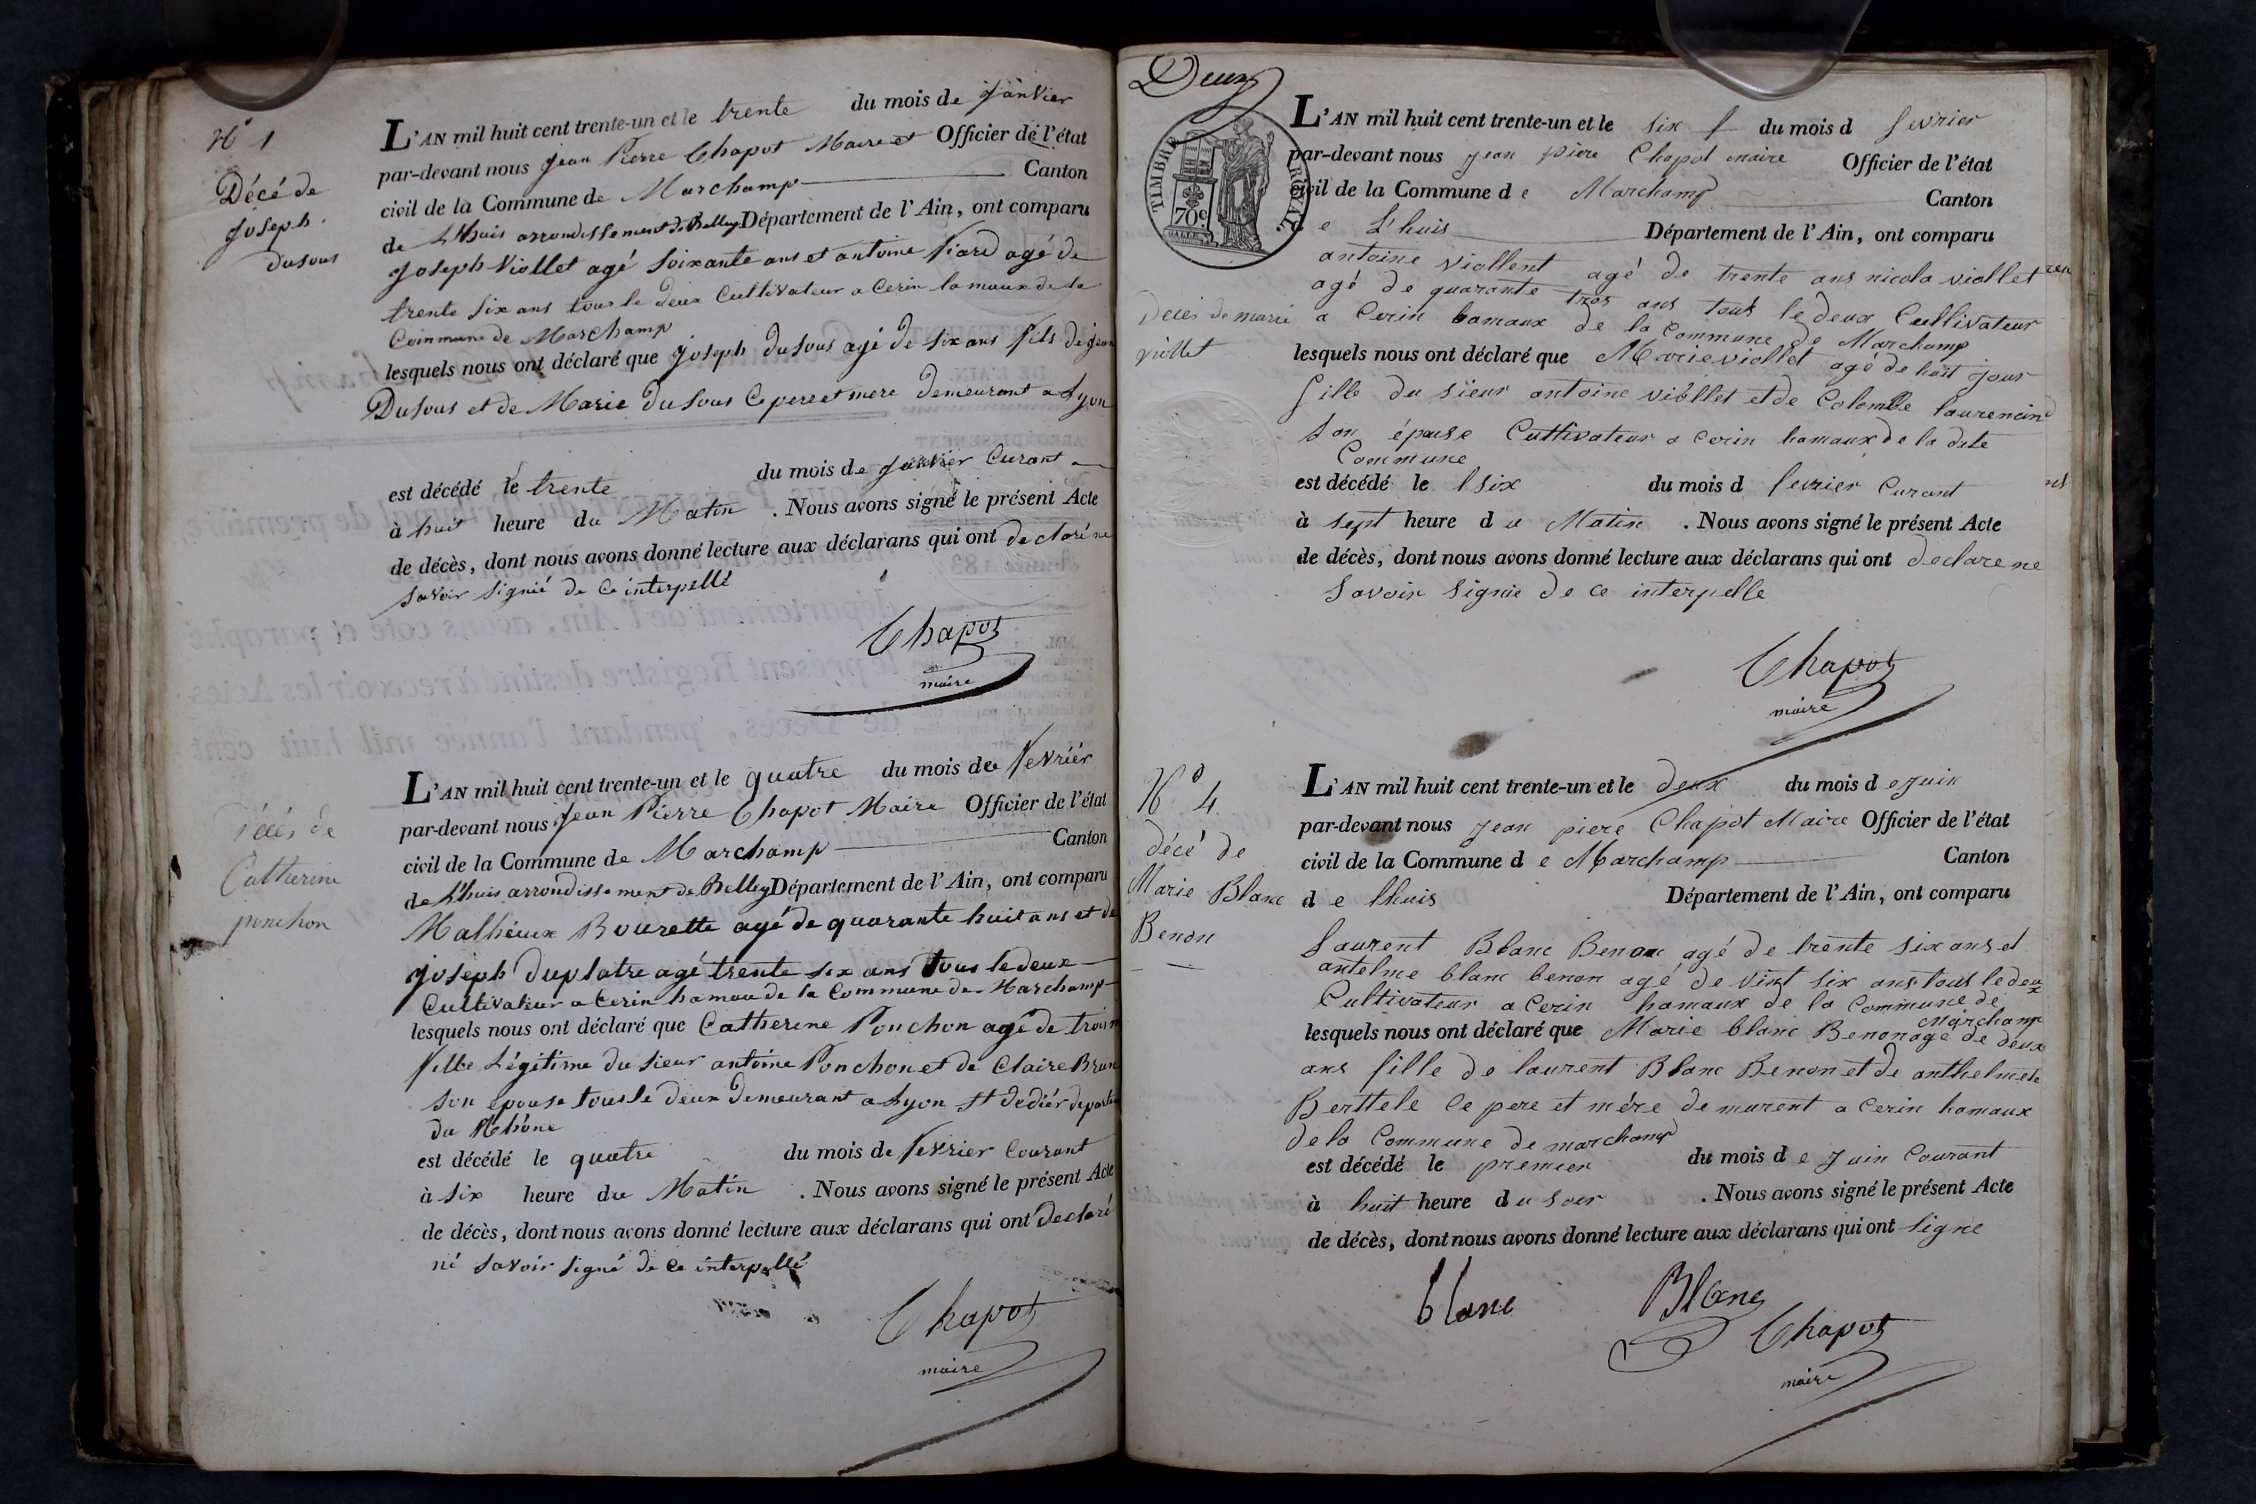 N° 1
Décé de
joseph
dusous
L'AN mil huit cent trente-un et le trente du mois de janvier
par-devant nous jean Pierre Chapot Maire et Officier de l'état
civil de la Commune de Marchamp Canton
de Lhuis arrondissement de Belley Département de l'Ain, ont comparu
joseph Viollet agé soixante ans et antoine fiard agé de
trente six ans tous le deux Cultivateur a Cerin de la
Commune de Marchamp
lesquels nous ont déclaré que joseph dusous agé de six ans fils de jean
Dusous et de Marie dusous Ce pere et mere demeurant a Lyon
est décédé le trente du mois de janvier Curant
à huit heure du Matin . Nous avons signé le présent Acte
de décès, dont nous avons donné lecture aux déclarans qui ont declaré ne
savoir signié de ce interpellé
Chapot
maire
Décés de
Catherine
ponchon
L'AN mil huit cent trente-un et le quatre du mois de fevriér
par-devant nous jean Pierre Chapot Maire Officier de l'état
civil de la Commune de Marchamp Canton
de Lhuis arrondissement de Belley Département de l'Ain, ont comparu
Malhieux Bourette agé de quarante huit ans et de
joseph duplatre agé trente six ans tous le deux
Cultivateur a Cerin hamau de la Commune de Marchamp
lesquels nous ont déclaré que Catherine Ponchon agé de trois
fille Légitime du sieur antoine Ponchon et de Claire Brun
son epouse tous le deux demeurant a Lyon St dediér
du Rhône
est décédé le quatre du mois de fevrier Courant
à six heure du Matin . Nous avons signé le présent Acte
de décès, dont nous avons donné lecture aux déclarans qui ont declaré
né savoir signé de ce interpellé
Chapot
maire
Deux
TIMBRE ROYAL
70c
L'AN mil huit cent trente-un et le six du mois d fevrier
par-devant nous jean piere Chapot maire Officier de l'état
civil de la Commune d e Marchamp Canton
e L'huis Département de l'Ain, ont comparu
antoine viollent agé de trente ans nicola viollet
agé de quarante tros ans tous le deux Cultivateur
Deces de marie
viollet
a Cerin hamaux de la Commune de Marchamp
lesquels nous ont déclaré que Marie viollet agé de huit jour
fille du sieur antoine viollet et de Colombe laurencin
son épouse Cultivateur a Cerin hamaux de la dite
Commune
est décédé le six du mois d fevrier Curant
à sept heure d u Matin . Nous avons signé le présent Acte
de décès, dont nous avons donné lecture aux déclarans qui ont declare ne
savoir signie de ce interpelle
Chapot
maire
N° 4
décé de
Marie Blanc
Benon
L'AN mil huit cent trente-un et le deux du mois d e juin
par-devant nous jean piere Chapot Maire Officier de l'état
civil de la Commune d e Marchamp Canton
d e lhuis Département de l'Ain, ont comparu
Laurent Blanc Benon agé de trente six ans et
antelme blanc benon agé de vint six ans tous le deux
Cultivateur a Cerin hamaux de la Commune de
Marchamp
lesquels nous ont déclaré que Marie blanc Benon age de deux
ans fille de laurent Blanc Benon et de anthelmete
Berttele Ce pere et mére demurent a Cerin hamaux
de la Commune de marchamp
est décédé le premier du mois d e juin Courant
à huit heure d u soir . Nous avons signé le présent Acte
de décès, dont nous avons donné lecture aux déclarans qui ont signe
blanc Blanc
Chapot
maire